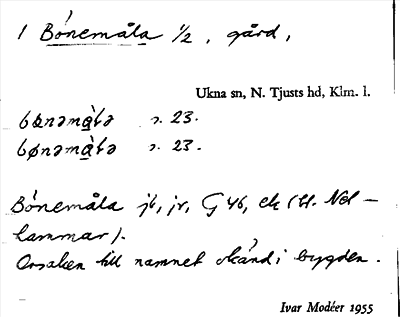 1 Bönemåla 1/2, gård,
Ukna sn, N. Tjusts hd, Klm. l.
bønəmå̀la 2. 23.
bønəmå̀la 2. 23.
Bönemåla jb, jr, G 46, ek (tl. Nel-
hammar).
Orsaken till namnet okänd i bygden.
Ivar Modéer 1955